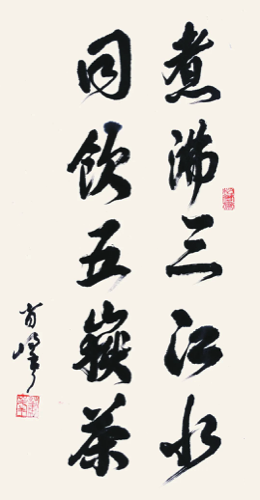 煮沸三江水
同饮五嶽茶
肖峰